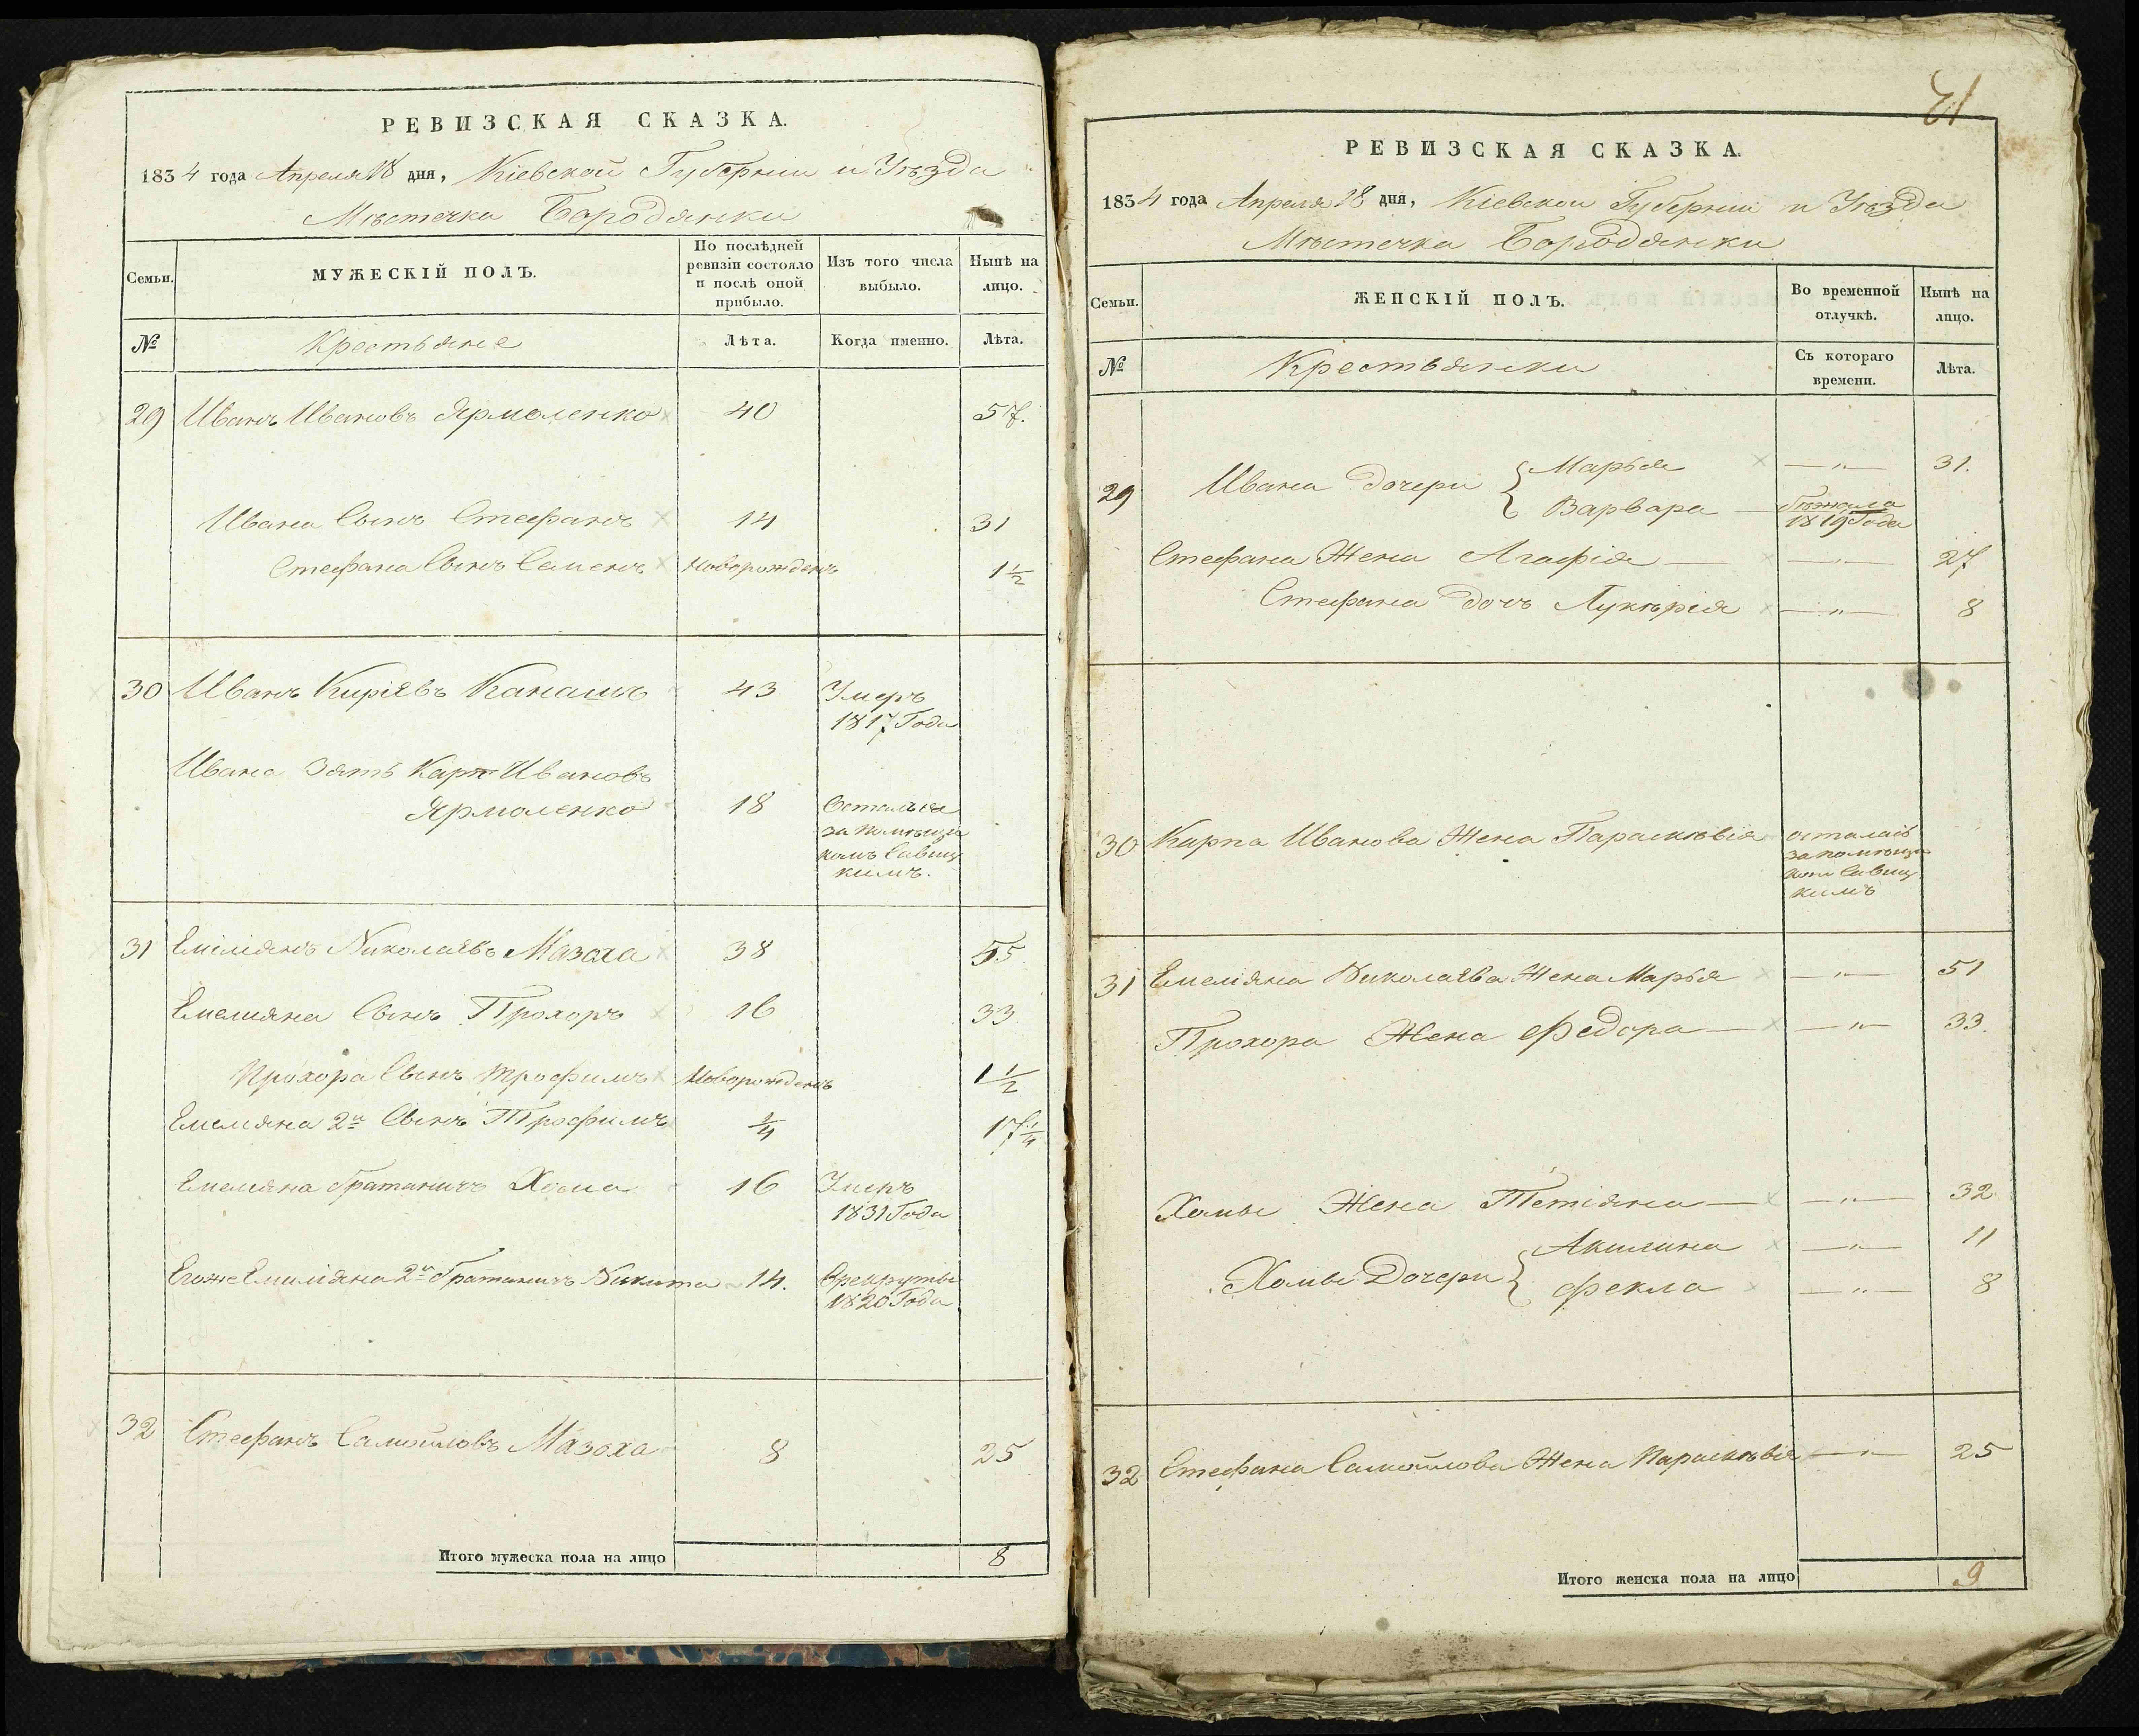 РЕВИЗСКАЯ СКАЗКА.
1834 года Апреля 18 дня, Кіевской Губерніи и Уѣзда
Мѣстечка Бородянки
Семьи.
МУЖЕСКІЙ ПОЛЪ.
По послѣдней ревизіи состояло и послѣ оной прибыло.
Изъ того числа выбыло.
Нынѣ на лицо.
№
Крестьяне
Лѣта.
Когда именно.
Лѣта.
29 Иванъ Ивановъ Ярмоленко 40 57.
Ивана Сынъ Стефанъ 14 31
Стефана Сынъ Семенъ Новорожденъ 1 1/2
30 Иванъ Киріевъ Канашъ 43 Умеръ
1817 Года
Ивана Зять Карп Ивановъ
Ярмоленко 18 Остался
за помѣщи
комъ Савиц
кимъ.
31 Емиліянъ Николаевъ Мазоха 38 55
Емелияна Сынъ Прохоръ 16 33
Прохора Сынъ Трофимъ Новорожденъ 1 1/2
Емелияна 2й Сынъ Трофимъ 1/4 17 1/4
Емелияна братаничъ Хома 16 Умеръ
1831 Года
Егоже Емилияна 2й братаничъ Никита 14. Врекруты
1820 Года
32 Стефанъ Самойловъ Мазоха 8 25
Итого мужеска пола на лицо 8
РЕВИЗСКАЯ СКАЗКА.
1834 года Апреля 18 дня, Кіевской Губерніи и Уѣзда
Мѣстечка Бородянки
Семьи.
ЖЕНСКІЙ ПОЛЪ.
Во временной отлучкѣ.
Нынѣ на лицо.
№
Крестьянки
Съ котораго времени.
Лѣта.
29 Ивана дочери { Марья — " — 31.
Варвара — бѣжала
1819 Года
Стефана Жена Агафія — — " — 27
Стефана дочь Лукѣрія — " — 8
30 Карпа Иванова Жена Параскѣвія осталась
за помѣщи
комъ Савиц
кимъ
31 Емелияна Николаева Жена Марья — " — 51
Прохора Жена Федора — — " — 33.
Хомы Жена Тетіяна — — " — 32
Хомы Дочери { Акилина — " — 11
Фекла — " — 8
32 Стефана Самойлова Жена Параскѣвія — " — 25
Итого женска пола на лицо 9